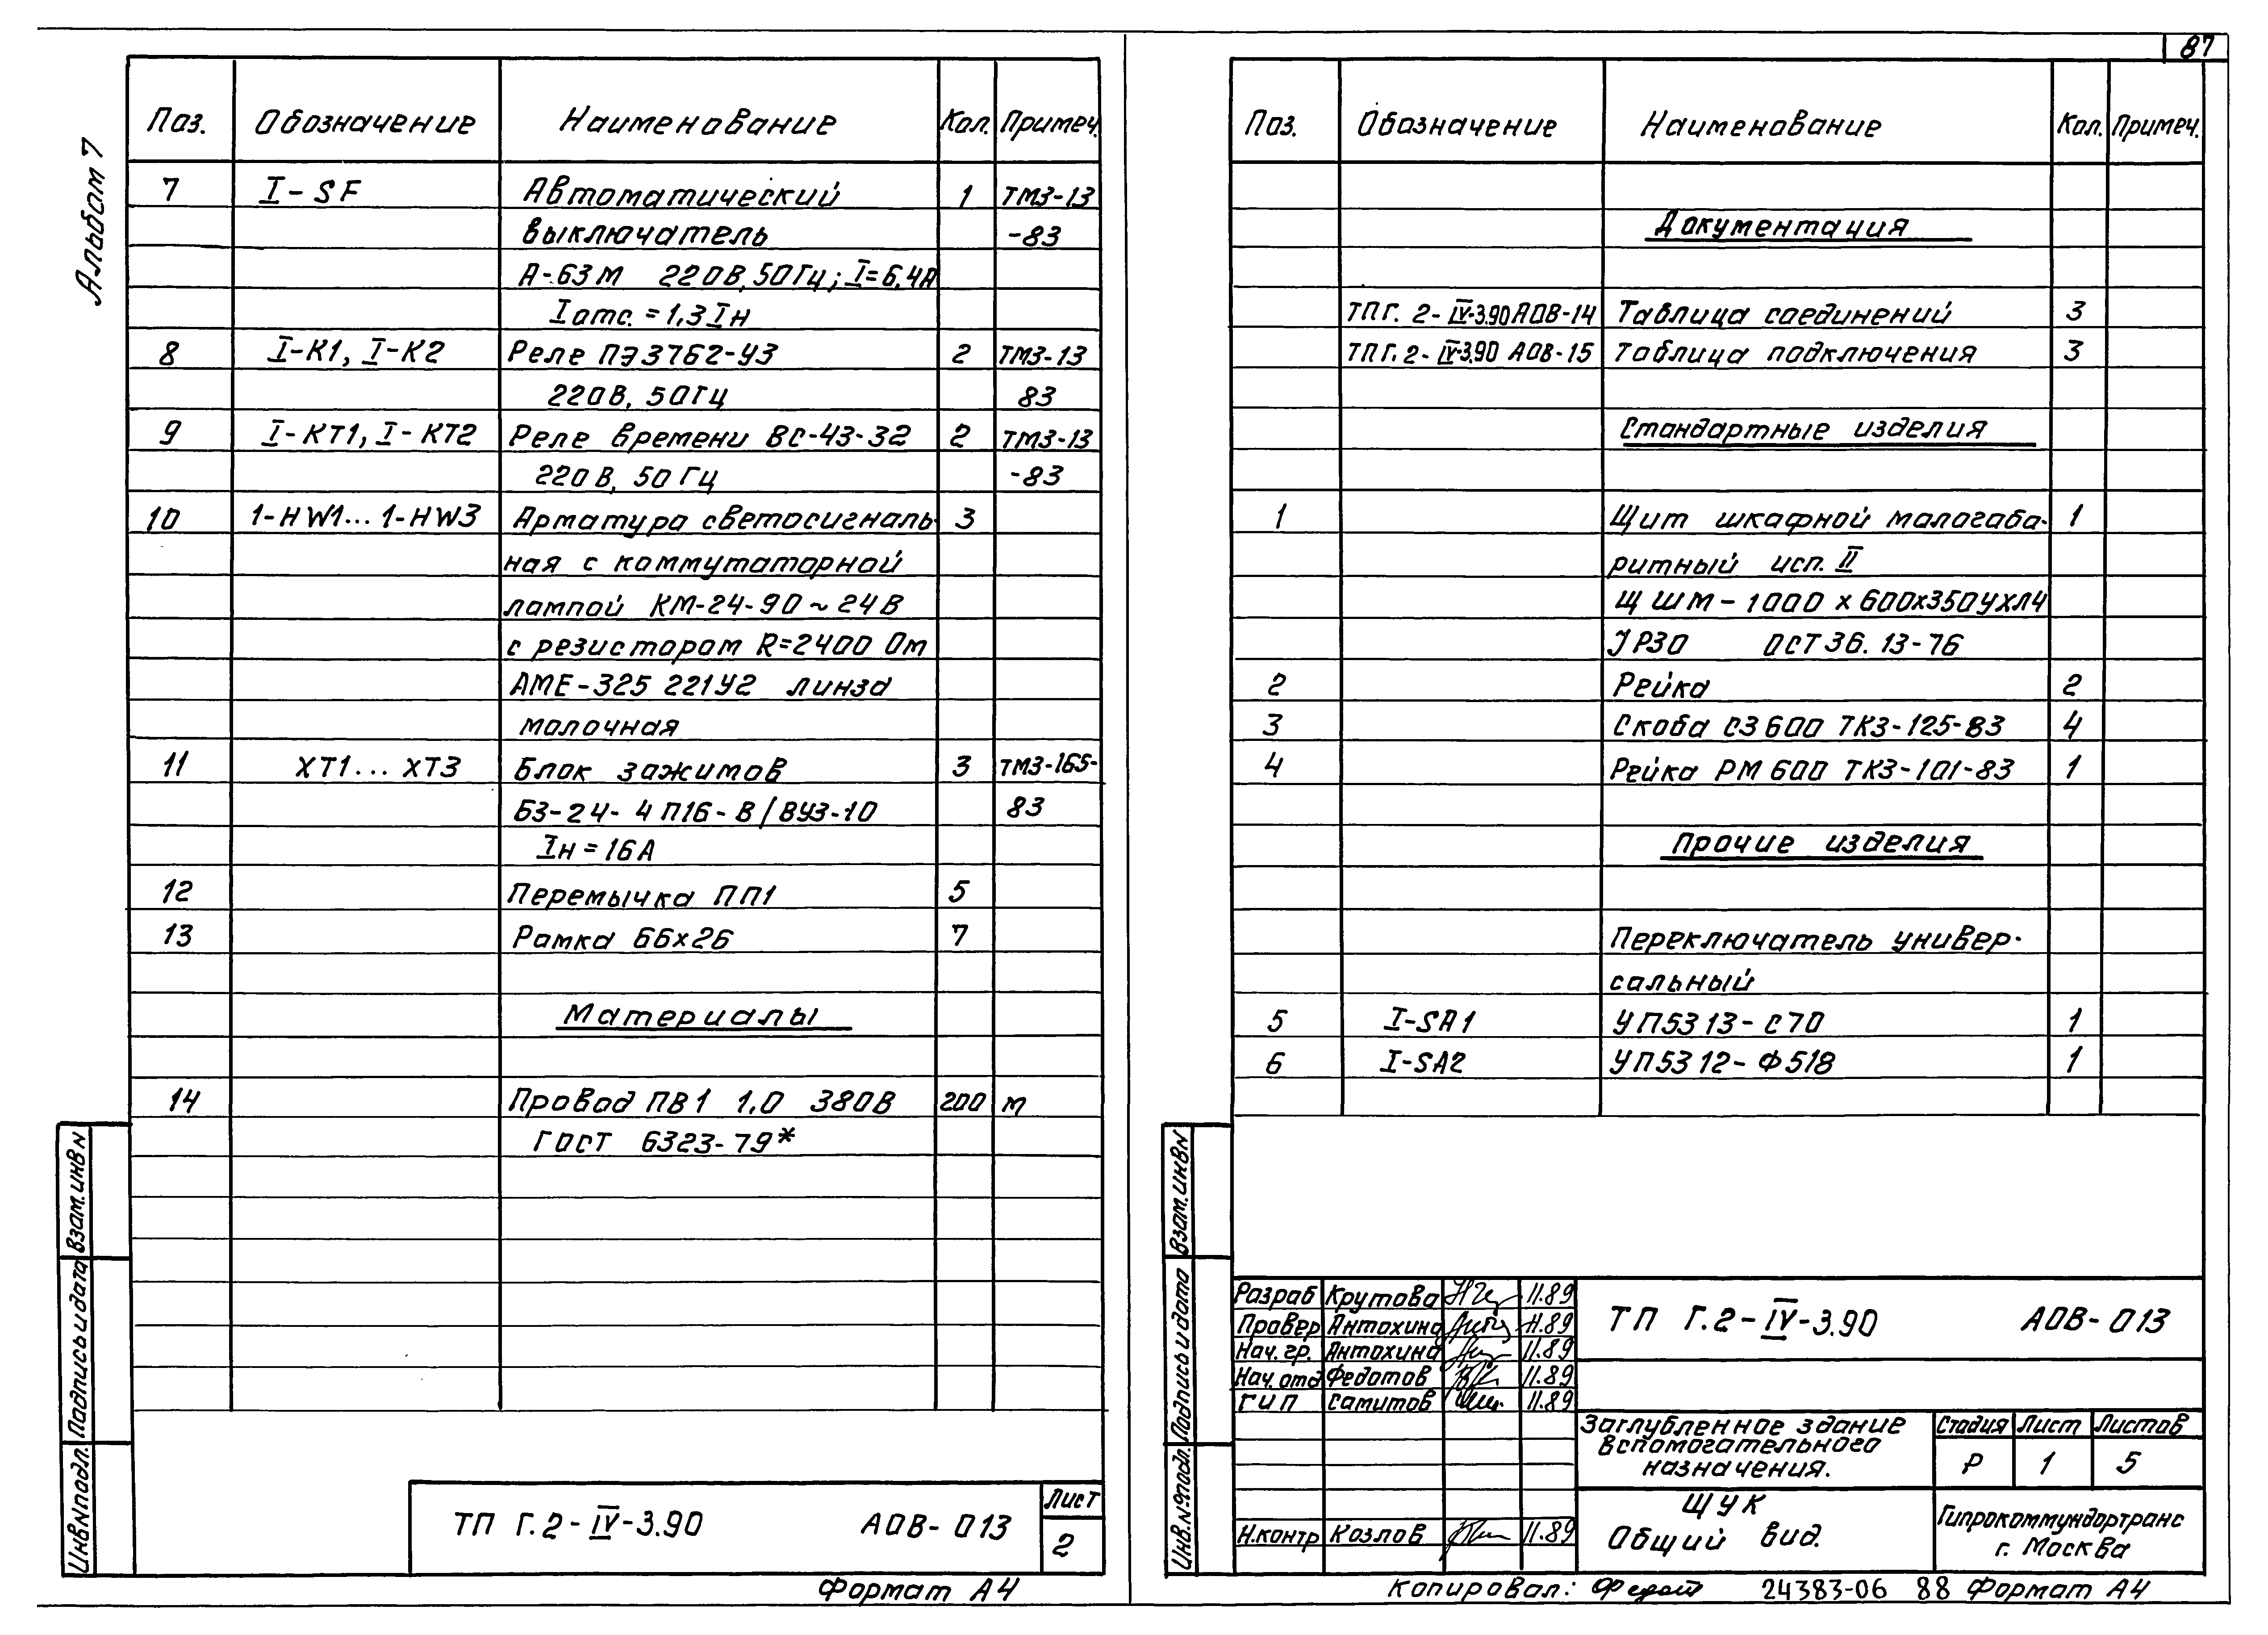 87
Альбом 7
Поз. Обозначение Наименование Кол. Примеч.
7 I-SF Автоматический 1 ТМ3-13
выключатель -83
А-63М 220В, 50Гц; I=6,4А
Iотс. = 1,3 Iн
8 I-К1, I-К2 Реле ПЭ3762-У3 2 ТМ3-13
220В, 50Гц 83
9 I-КТ1, I-КТ2 Реле времени ВС-43-32 2 ТМ3-13
220В, 50 Гц -83
10 1-HW1... 1-HW3 Арматура светосигналь- 3
ная с коммутаторной
лампой КМ-24-90 ~ 24В
с резистором R=2400 Ом
АМЕ-325 221У2 линза
молочная
11 ХТ1... ХТ3 Блок зажимов 3 ТМ3-165-
БЗ-24-4П16-В/ВУЗ-10 83
Iн = 16А
12 Перемычка ПП1 5
13 Рамка 66х26 7
Материалы
14 Провод ПВ1 1,0 380В 200 м
ГОСТ 6323-79*
Взам.инв№
Подпись и дата
Инв№подл.
ТП Г.2-IV-3.90 АОВ-013
Лист
2
Формат А4
Поз. Обозначение Наименование Кол. Примеч.
Документация
ТПГ. 2-IV-3.90 АОВ-14 Таблица соединений 3
ТПГ. 2-IV-3.90 АОВ-15 Таблица подключения 3
Стандартные изделия
1 Щит шкафной малогаба- 1
ритный исп. II
ЩШМ-1000х600х350УХЛ4
JР30 ОСТ36.13-76
2 Рейка 2
3 Скоба С3600 ТК3-125-83 4
4 Рейка РМ600 ТК3-101-83 1
Прочие изделия
Переключатель универ-
сальный
5 I-SA1 УП5313-С70 1
6 I-SA2 УП5312-Ф518 1
Взам.инв№
Подпись и дата
Инв.№подл.
Разраб Крутова 11.89
Провер Антохина 11.89
Нач.гр. Антохина 11.89
Нач.отд Федотов 11.89
ГИП Самитов 11.89
Н.контр Козлов 11.89
ТП Г.2-IV-3.90 АОВ-013
Заглубленное здание
вспомогательного
назначения.
Стадия Лист Листов
Р 1 5
ЩУК
Общий вид.
Гипрокоммундортранс
г. Москва
Копировал: 24383-06 88 Формат А4